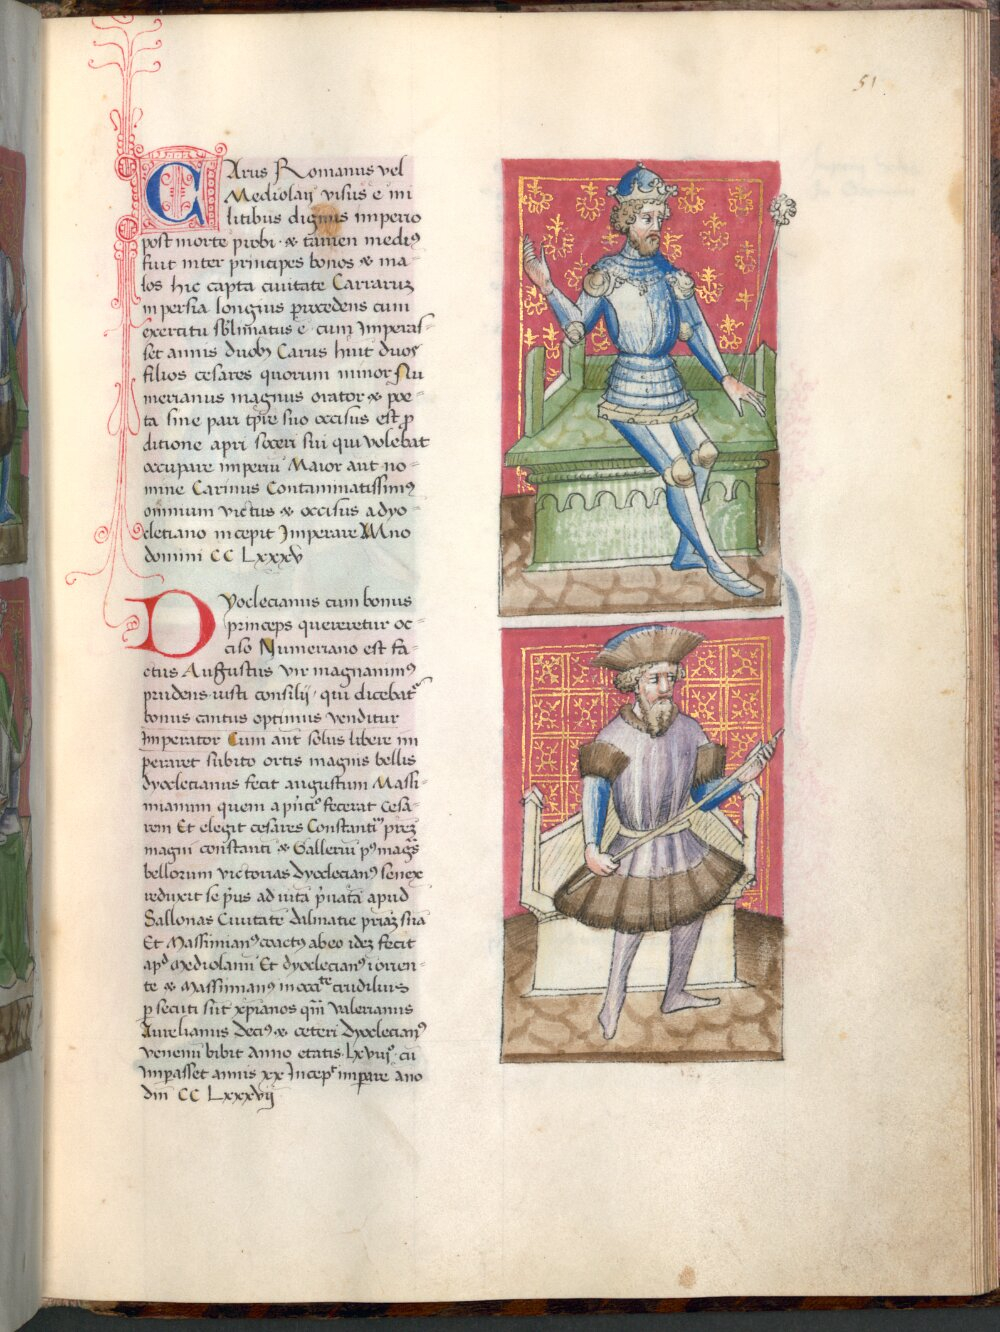 51
CArus Romanus vel
Mediolañ visus ẽ mi
litibus dignus imperio
post morte probi · & tamen mediꝰ
fuit inter principes bonos & ma⸗
los hic capta ciuitate Carraruȝ
in persia longius procedens cum
exercitu sublimatus ẽ cum Imperas⸗
set annis duobȝ Carus huit duos
filios cesares quorum minor Nu
merianus magnus orator & poe⸗
ta sine pari tpr̃e suo occisus est ꝓ
ditione apri soceri sui qui volebat
occupare imperiũ Maior aut no⸗
mine Carinus Contaminatissimꝰ
omnium victus & occisus a dyo⸗
cletiano incepit Imperare Anno
domini CC Lxxxv
DYoclecianus cum bonus
princeps quereretur oc⸗
ciso Numeriano est fa⸗
ctus Auffustus vir magnanimꝰ
prudens iusti consilij · qui dicebat᷑
bonus cantus optimus venditur
Imperator Cum aut solus libere im
peraret subito ortis magnis bellis
dyoclecianus fecit augustum Massi⸗
mianum quem a pñcio fecerat Cesa⸗
rem Et elegit cesares Constantiũ prẽȝ
magni constanti & Galleriũ pꝰ magẽs
bellorum victorias dyoclecianꝰ senex
reduxit se pꝰus ad uitã pͥuatã apud
Sallonas Ciuitate dalmatie pr̃iaȝ suã
Et Massimianꝰ coactꝰ ab eo ideȝ fecit
apᵈ Mediolanũ Et dyoclecianꝰ i orien⸗
te & Massimianꝰ in occᵗᵉ crudiliuȝ
ꝑsecuti sũt xp̃ianos qm̃ Valerianus
Aurelianus Deciꝰ & ceteri dyoclecianꝰ
venenũ bibit Anno etatis · Lxviijº · cũ
imꝑasset annis xx Incepᵗ imꝑare año
dñi CC Lxxxvij